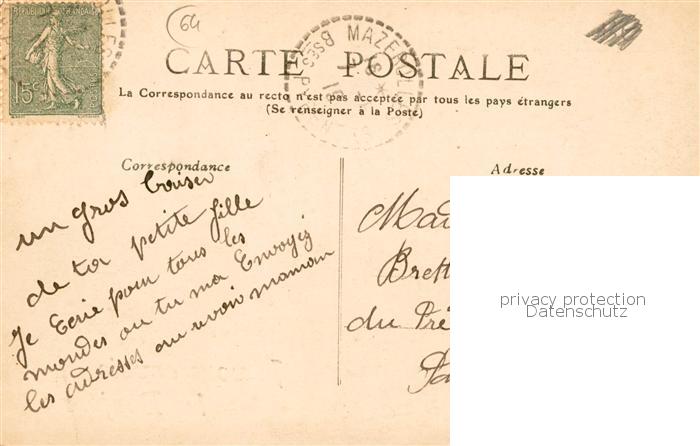 64
CARTE POSTALE
La Correspondance au recto n'est pas acceptée par tous les pays étrangers
(Se renseigner à la Poste)
Correspondance
un gros baiser
de ta petite fille
Je Ecrie pour tous les
mondes ou tu ma Envoyez
les adresses au revoir maman
Adresse
Mad
Brett
du Pré
Pa
privacy protection
Datenschutz
15c
MAZEROLLES
BSES P